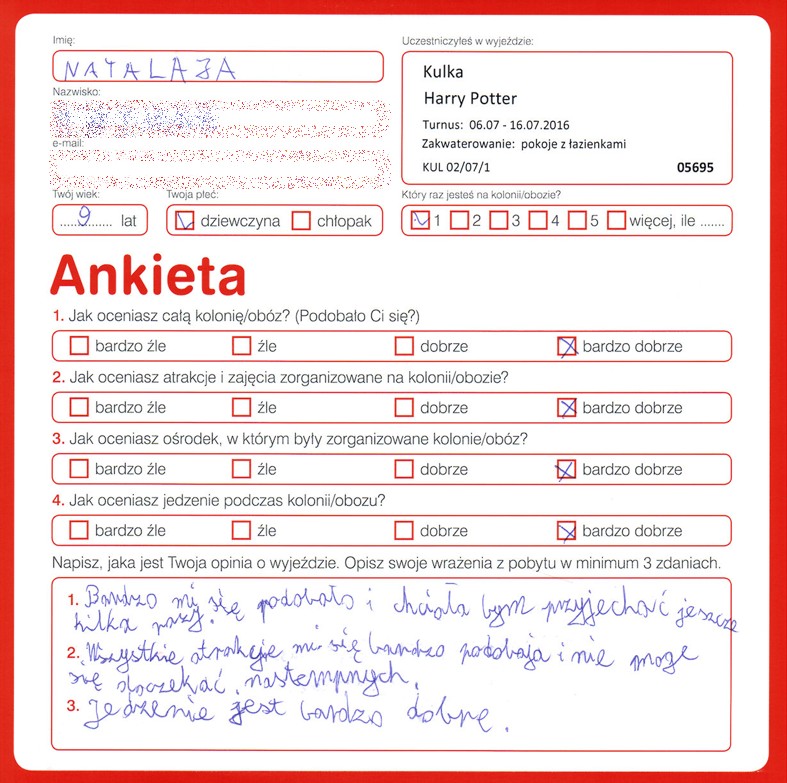 Imię:
NATALAJA
Nazwisko:
e-mail:
Twój wiek:
9 lat
Twoja płeć:
dziewczyna chłopak
Uczestniczyłeś w wyjeździe:
Kulka
Harry Potter
Turnus: 06.07 - 16.07.2016
Zakwaterowanie: pokoje z łazienkami
KUL 02/07/1 05695
Który raz jesteś na kolonii/obozie?
1 2 3 4 5 więcej, ile .......
Ankieta
1. Jak oceniasz całą kolonię/obóz? (Podobało Ci się?)
bardzo źle źle dobrze bardzo dobrze
2. Jak oceniasz atrakcje i zajęcia zorganizowane na kolonii/obozie?
bardzo źle źle dobrze bardzo dobrze
3. Jak oceniasz ośrodek, w którym były zorganizowane kolonie/obóz?
bardzo źle źle dobrze bardzo dobrze
4. Jak oceniasz jedzenie podczas kolonii/obozu?
bardzo źle źle dobrze bardzo dobrze
Napisz, jaka jest Twoja opinia o wyjeździe. Opisz swoje wrażenia z pobytu w minimum 3 zdaniach.
1. Bardzo mi się podobało i chciała bym przyjechać jeszcze
kilka razy.
2. Wszystkie atrakcje mi się bardzo podobaja i nie moge
się doczekać nastempnych.
3. Jedzenie jest bardzo dobre.